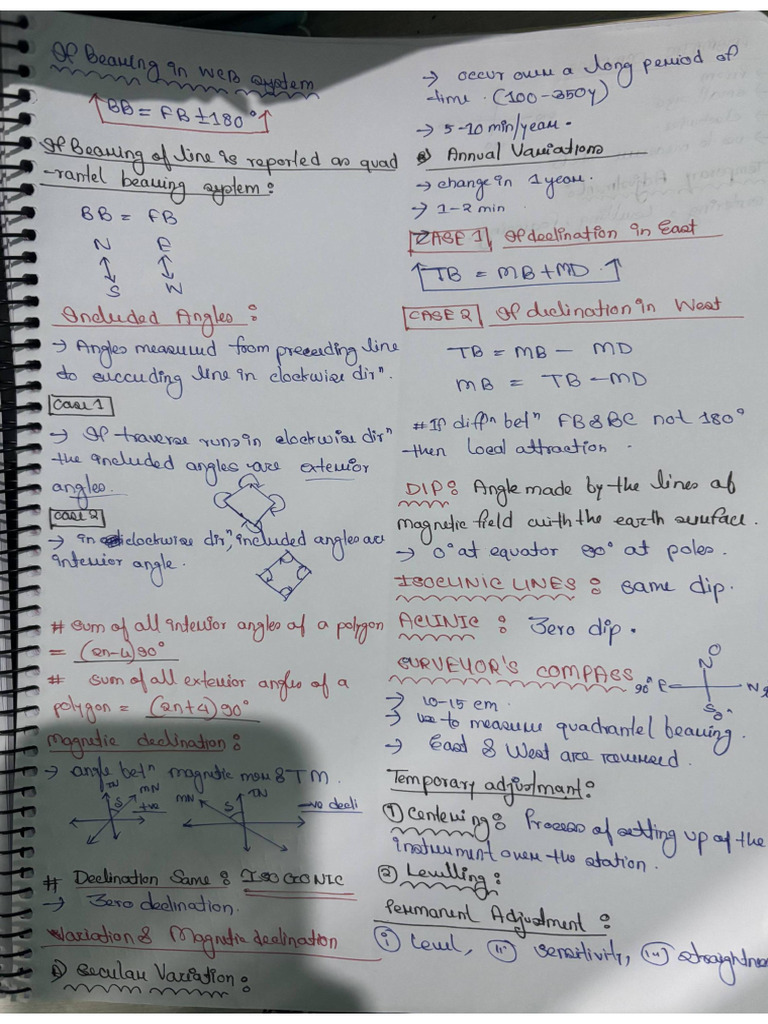 If Bearing in WCB system
BB = FB ± 180°
If Bearing of line is reported as quad
-rantel bearing system:
BB = FB
N E
S W
Included Angles:
→ Angles measured from preceeding line
to succeding line in clockwise dirⁿ.
Case 1
→ If traverse runs in clockwise dirⁿ
the included angles are exterior
angles.
Case 2
→ in clockwise dirⁿ, included angles are
interior angle.
# sum of all interior angles of a polygon
= (2n-4)90°
# sum of all exterior angles of a
polygon = (2n+4)90°
Magnetic declination:
→ angle betⁿ magnetic mer & TM.
TN MN S +ve
MN S TN -ve decli
# Declination Same: ISOGONIC
→ Zero declination.
Variation & Magnetic declination
Secular Variation:
→ occur over a long period of
time. (100-350y)
→ 5-10 min/year.
Annual Variations
→ change in 1 year.
→ 1-2 min
CASE 1 If declination in East
TB = MB + MD.
CASE 2 If declination in West
TB = MB - MD
MB = TB - MD
# If diffⁿ betⁿ FB & BC not 180°
then local attraction.
DIP: Angle made by the lines of
magnetic field with the earth surface.
→ 0° at equator 90° at poles.
ISOCLINIC LINES: same dip.
ACLINIC: Zero dip.
SURVEYOR'S COMPASS
0
N
90° E
S 0°
→ 10-15 cm
→ use to measure quadrantel bearing.
→ East & West are reversed.
Temporary adjustmant:
① Centering: Process of setting up of the
instrument over the station.
② Levelling:
Permanent Adjustment:
ⓘ Level, ⓘⓘ sensitivity, ⓘⓘⓘ straightness